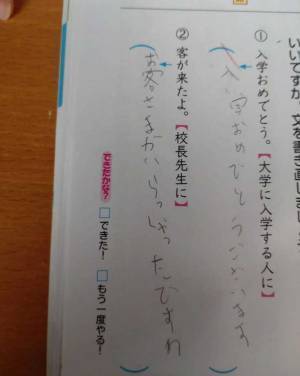 いいですか。文を書き直しましょう
① 入学おめでとう。【大学に入学する人に】
入学おめでとうございます
② 客が来たよ。【校長先生に】
お客さまがいらっしゃったですね
できたかな?
□できた! □もう一度やる!